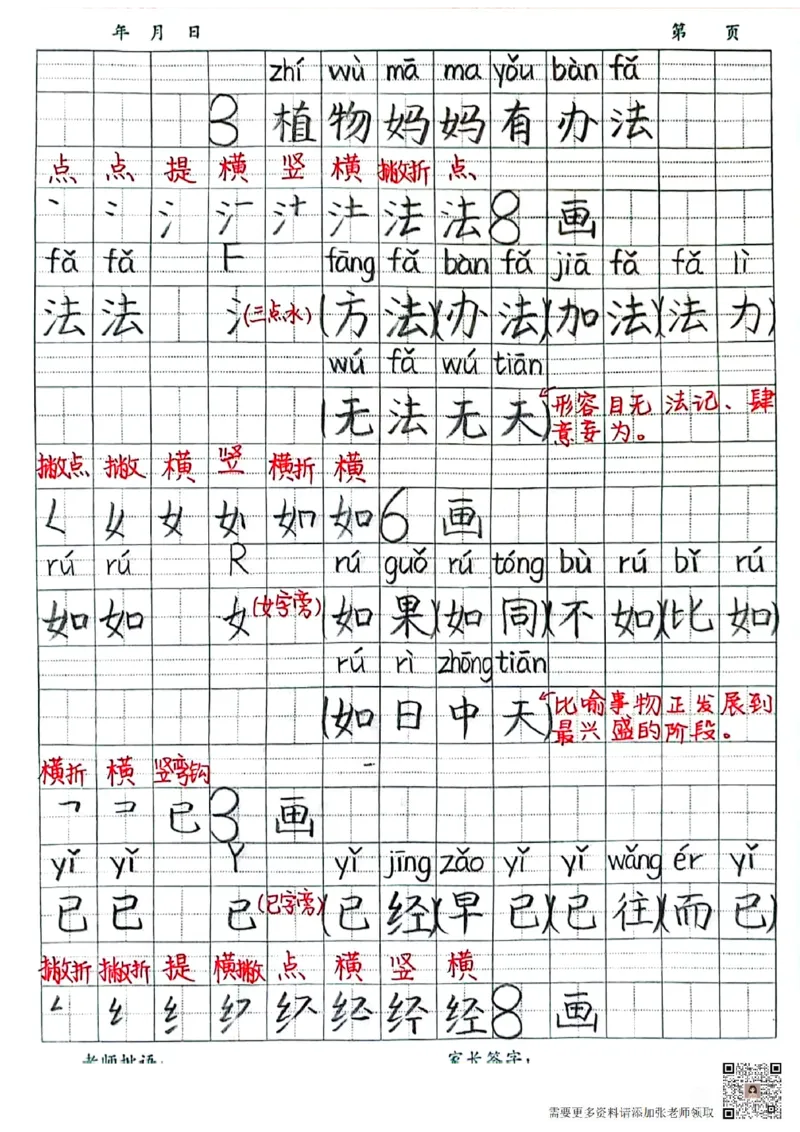 年 月 日 第 页
zhí wù mā ma yǒu bàn fǎ
3 植物妈妈有办法
点 点 提 横 竖 横 撇折 点
丶 冫 氵 法 法 8 画
fǎ fǎ F fāng fǎ bàn fǎ jiā fǎ fǎ lì
法 法 氵(三点水) (方法)(办法)(加法)(法力)
wú fǎ wú tiān
(无法无天) 形容目无法记、肆意妄为。
撇点 撇 横 竖 横折 横
女 如 6 画
rú rú R rú guǒ rú tóng bù rú bǐ rú
如 如 女(女字旁) (如果)(如同)(不如)(比如)
rú rì zhōng tiān
(如日中天) 比喻事物正发展到最兴盛的阶段。
横折 横 竖弯钩
㇕ コ 已 3 画
yǐ yǐ Y yǐ jīng zǎo yǐ yǐ wǎng ér yǐ
已 已 已(已字旁) (已经)(早已)(已往)(而已)
撇折 撇折 提 横撇 点 横 竖 横
纟 经 8 画
老师批语: 家长签字:
需要更多资料请添加张老师领取